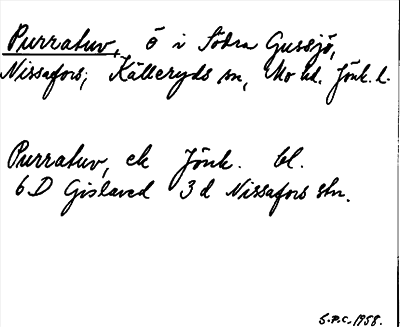 Purratuv, ö i Södra Gussjö,
Nissafors; Källeryds sn, Mo hd. Jönk. l.
Purratuv, ek Jönk. bl.
6D Gislaved 3d Nissafors stn.
S.P.C. 1958.